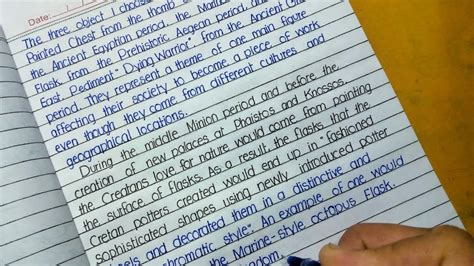 Date:
The three object I choose
Painted Chest from the thomb of
the Ancient Egyptian period, the Marine
Flask from the Prehistoric Aegean period, and
East Pediment "Dying Warrior" from the Ancient
period. They represent a theme of one main figure
affecting their society to become a piece of work
even though they come from different cultures and
geographical locations.
During the middle Minion period and before the
creation of new palaces at Phaistos and Knossos,
the Creatans love for nature would come from painting
the surface of flasks. As a result, the flasks that the
Cretan potters created would end up in "fashioned
sophisticated shapes using newly introduced potter
and decorated them in a distinctive and
chromatic style". An example of one would
the Marine-style octopus Flask.